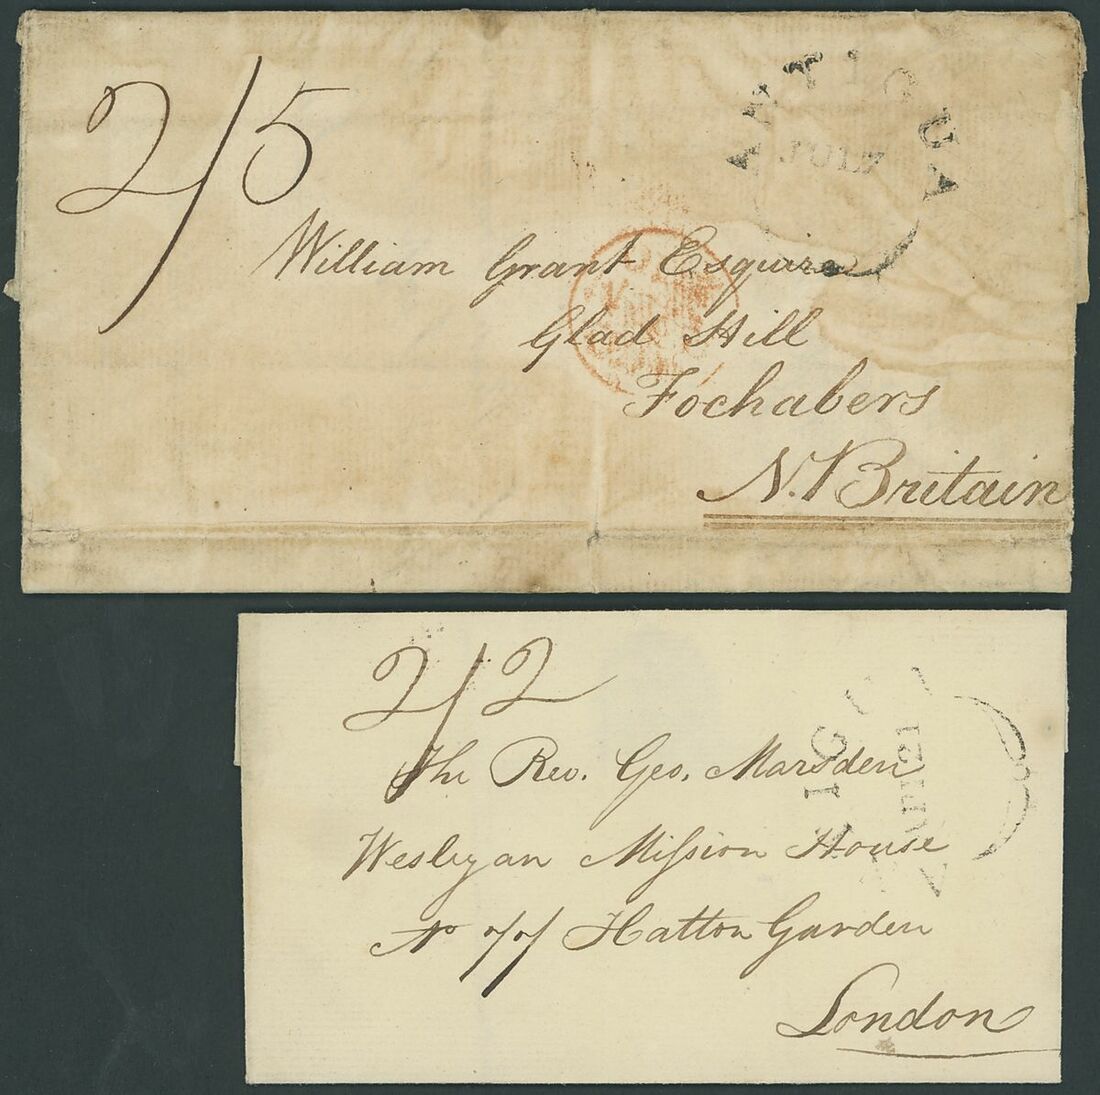 2/5
ANTIGUA
JU17
William Grant Esquire
Glad Hill
Fochabers
N. Britain
2/2
The Rev. Geo. Marsden
Wesleyan Miſsion House
No 77 Hatton Garden
London